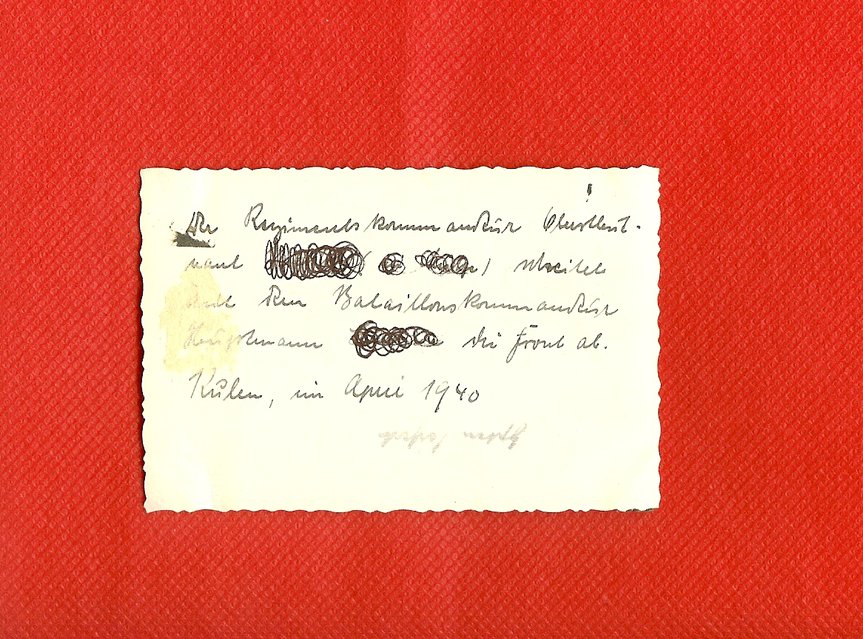 Der Regimentskommandeur Oberstleut-
nant schreitet
mit dem Bataillonskommandeur
Hauptmann die Front ab.
im April 1940